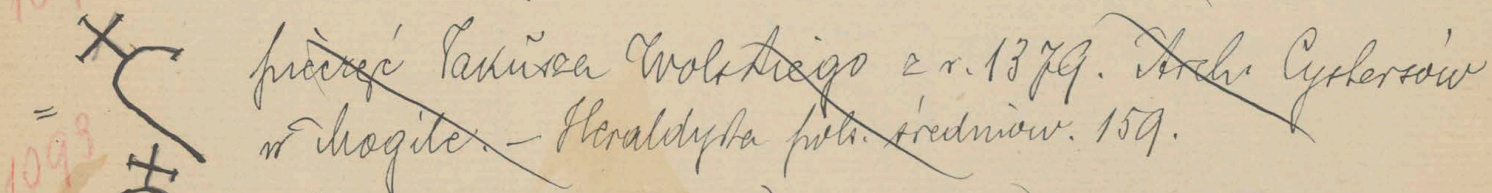 pieczęć Jakusza Wolskiego z r. 1379. Arch. Cystersów
=
w Mogile. – Heraldyka pols. średniow. 159.
1093